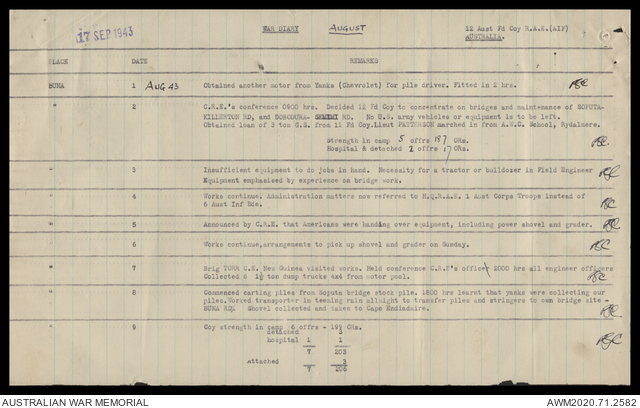 17 SEP 1943
WAR DIARY AUGUST 12 Aust Fd Coy R.A.E.(AIF)
AUSTRALIA.
PLACE DATE REMARKS
BUNA 1 AUG 43 Obtained another motor from Yanks (Chevrolet) for pile driver. Fitted in 2 hrs.
" 2 C.R.E.'s conference 0900 hrs. Decided 12 Fd Coy to concentrate on bridges and maintenance of SOPUTA-
KILLERTON RD, and RD. No U.S. army vehicles or equipment is to be left.
Obtained loan of 3 ton G.S. from 11 Fd Coy. Lieut PATTERSON marched in from A.W.C. School, Rydalmere.
Strength in camp 5 offrs 187 ORs.
Hospital & detached 2 offrs 17 ORs.
" 3 Insufficient equipment to do jobs in hand. Necessity for a tractor or bulldozer in Field Engineer
Equipment emphasised by experience on bridge work.
" 4 Works continue. Administration matters now referred to H.Q.R.A.E. 1 Aust Corps Troops instead of
6 Aust Inf Bde.
" 5 Announced by C.R.E. that Americans were handing over equipment, including power shovel and grader.
" 6 Works continue,arrangements to pick up shovel and grader on Sunday.
" 7 Brig TORR C.E. New Guinea visited works. Held conference C.R.E's office 2000 hrs all engineer officers
Collected 6 1½ ton dump trucks 4x4 from motor pool.
" 8 Commenced carting piles from Soputa bridge stock pile. 1800 hrs learnt that yanks were collecting our
piles.Worked transporter in teeming rain allnight to transfer piles and stringers to own bridge site -
BUNA Shovel collected and taken to Cape Endiadaire.
" 9 Coy strength in camp 6 offrs - 199 ORs.
detached 3
hospital 1 1
7 203
Attached 3
7 206
AUSTRALIAN WAR MEMORIAL AWM2020.71.2582